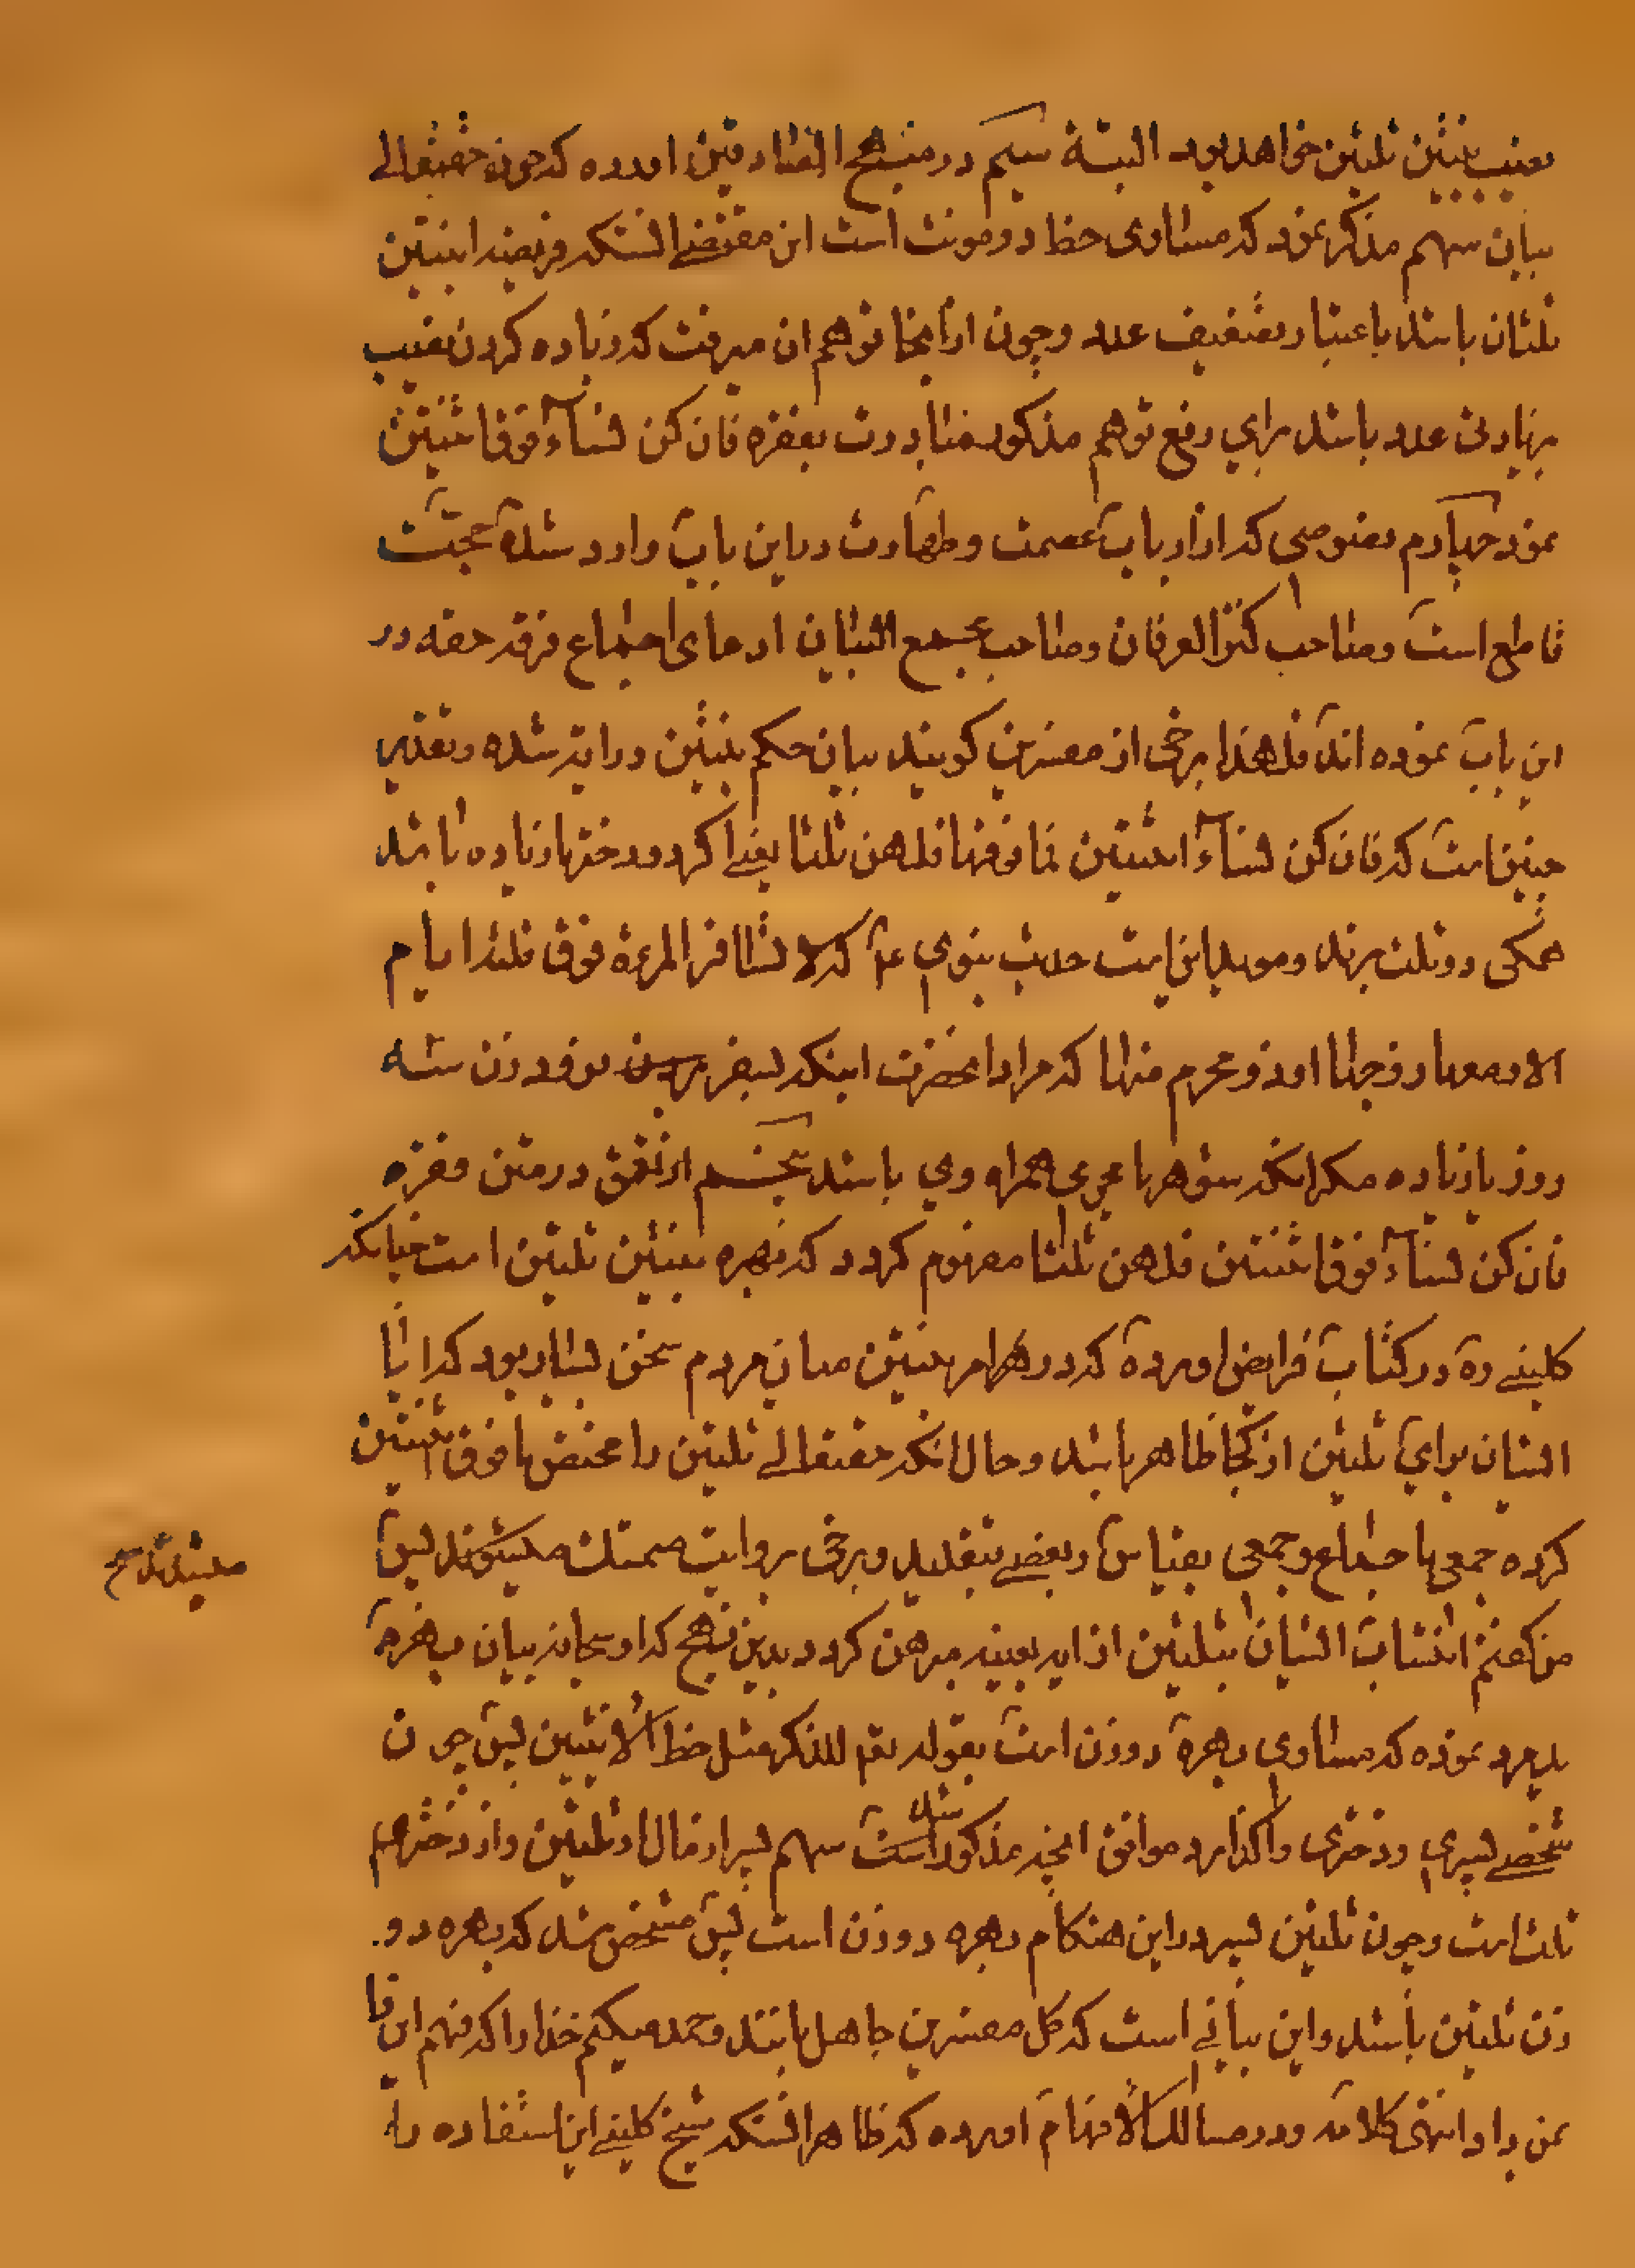 نصیب بنتین ثلثین خواهد بود البتة سیم در منهج الصادقین اورده که چون حقتعالی
بیان سهم مذکر نمود که مساوی حظ دو مونث است این مقتضی انستکه فریضه ابنتین
ثلثان باشد باعتبار تضعیف عدد و چون ازاینجا توهم ان میرفت که زیاده کردن نصیب
بزیادتی عدد باشد برای رفع توهم مذکور مبادرت بفقره فان کن نسآء فوق اثنتین
نمود چهارم نصوصی که از ارباب عصمت و طهارت در این باب وارد شده حجت
قاطع است و صاحب کنز العرفان و صاحب مجمع البیان ادعای اجماع فرقه حقه در
این باب نموده اند فلهذا برخی از مفسرین کویند بیان حکم بنتین در ایه شده و تقدیر
چنین است که فان کن نسآء اثنتین فما فوقها فلهن ثلثا یعنی اکر دو دختر یا زیاده باشد
همکی دو ثلث برند و موید این است حدیث نبوی ع که لا تسافر المرءة فوق ثلثة ایام
الا و معها زوجها او ذو محرم منها که مراد انحضرت اینکه بسفر نرود زن سه
روز یا زیاده مکر انکه شوهر یا محرمی همراه وی باشد پنجم از تعمق در متن فقره
فان کن نسآء فوق اثنتین فلهن ثلثا مفهوم کردد که بهره بنتین ثلثین است چنانکه
کلینی ره در کتاب فرایض اورده که در بهره بنتین میان مردم سخن بسیار بود که ایا
انتسان برای ثلثین از کجا ظاهر باشد و حال انکه حقتعالی ثلثین را مختص بافوق اثنتین
کرده جمعی باجماع و جمعی بقیاس و بعضی بتقلید و برخی بروایت متمسک میشوند پس
من کفتم انتساب انتسان بثلثین از ایه بعینه مبرهن کردد بدین نهج که او سبحانه بیان بهره
یک مرد نموده که مساوی بهره دو زن است بقوله تع للذکر مثل حظ الانثیین پس چون
شخصی پسری و دختری واکذارد موافق انچه مذکور شد است سهم پسر از مال او ثلثین و از دختر هم
ثلث است و چون ثلثین پسر در این هنکام بهره دو زن است پس مشخص شد که بهره دو
زن ثلثین باشد و این بیانی است که کل مفسرین جاهل باشند و حمد میکنم خدا را که فهم این را
بمن داد انتهی کلامه و در مسالک الافهام اورده که ظاهرا انستکه شیخ کلینی این استفاده را